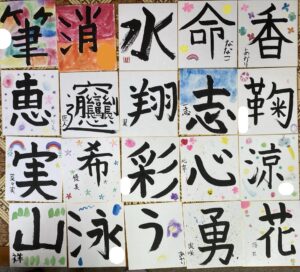 筆 消 水 命 香
恵 𰻞 翔 志 鞠
実 希 彩 心 涼
山 泳 う 勇 花